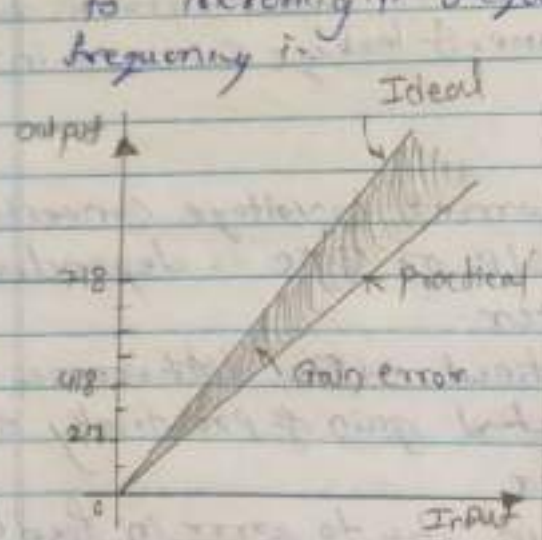 to
frequency is
Ideal
output
7/8
Practical
4/8
Gain error
2/7
0
Input